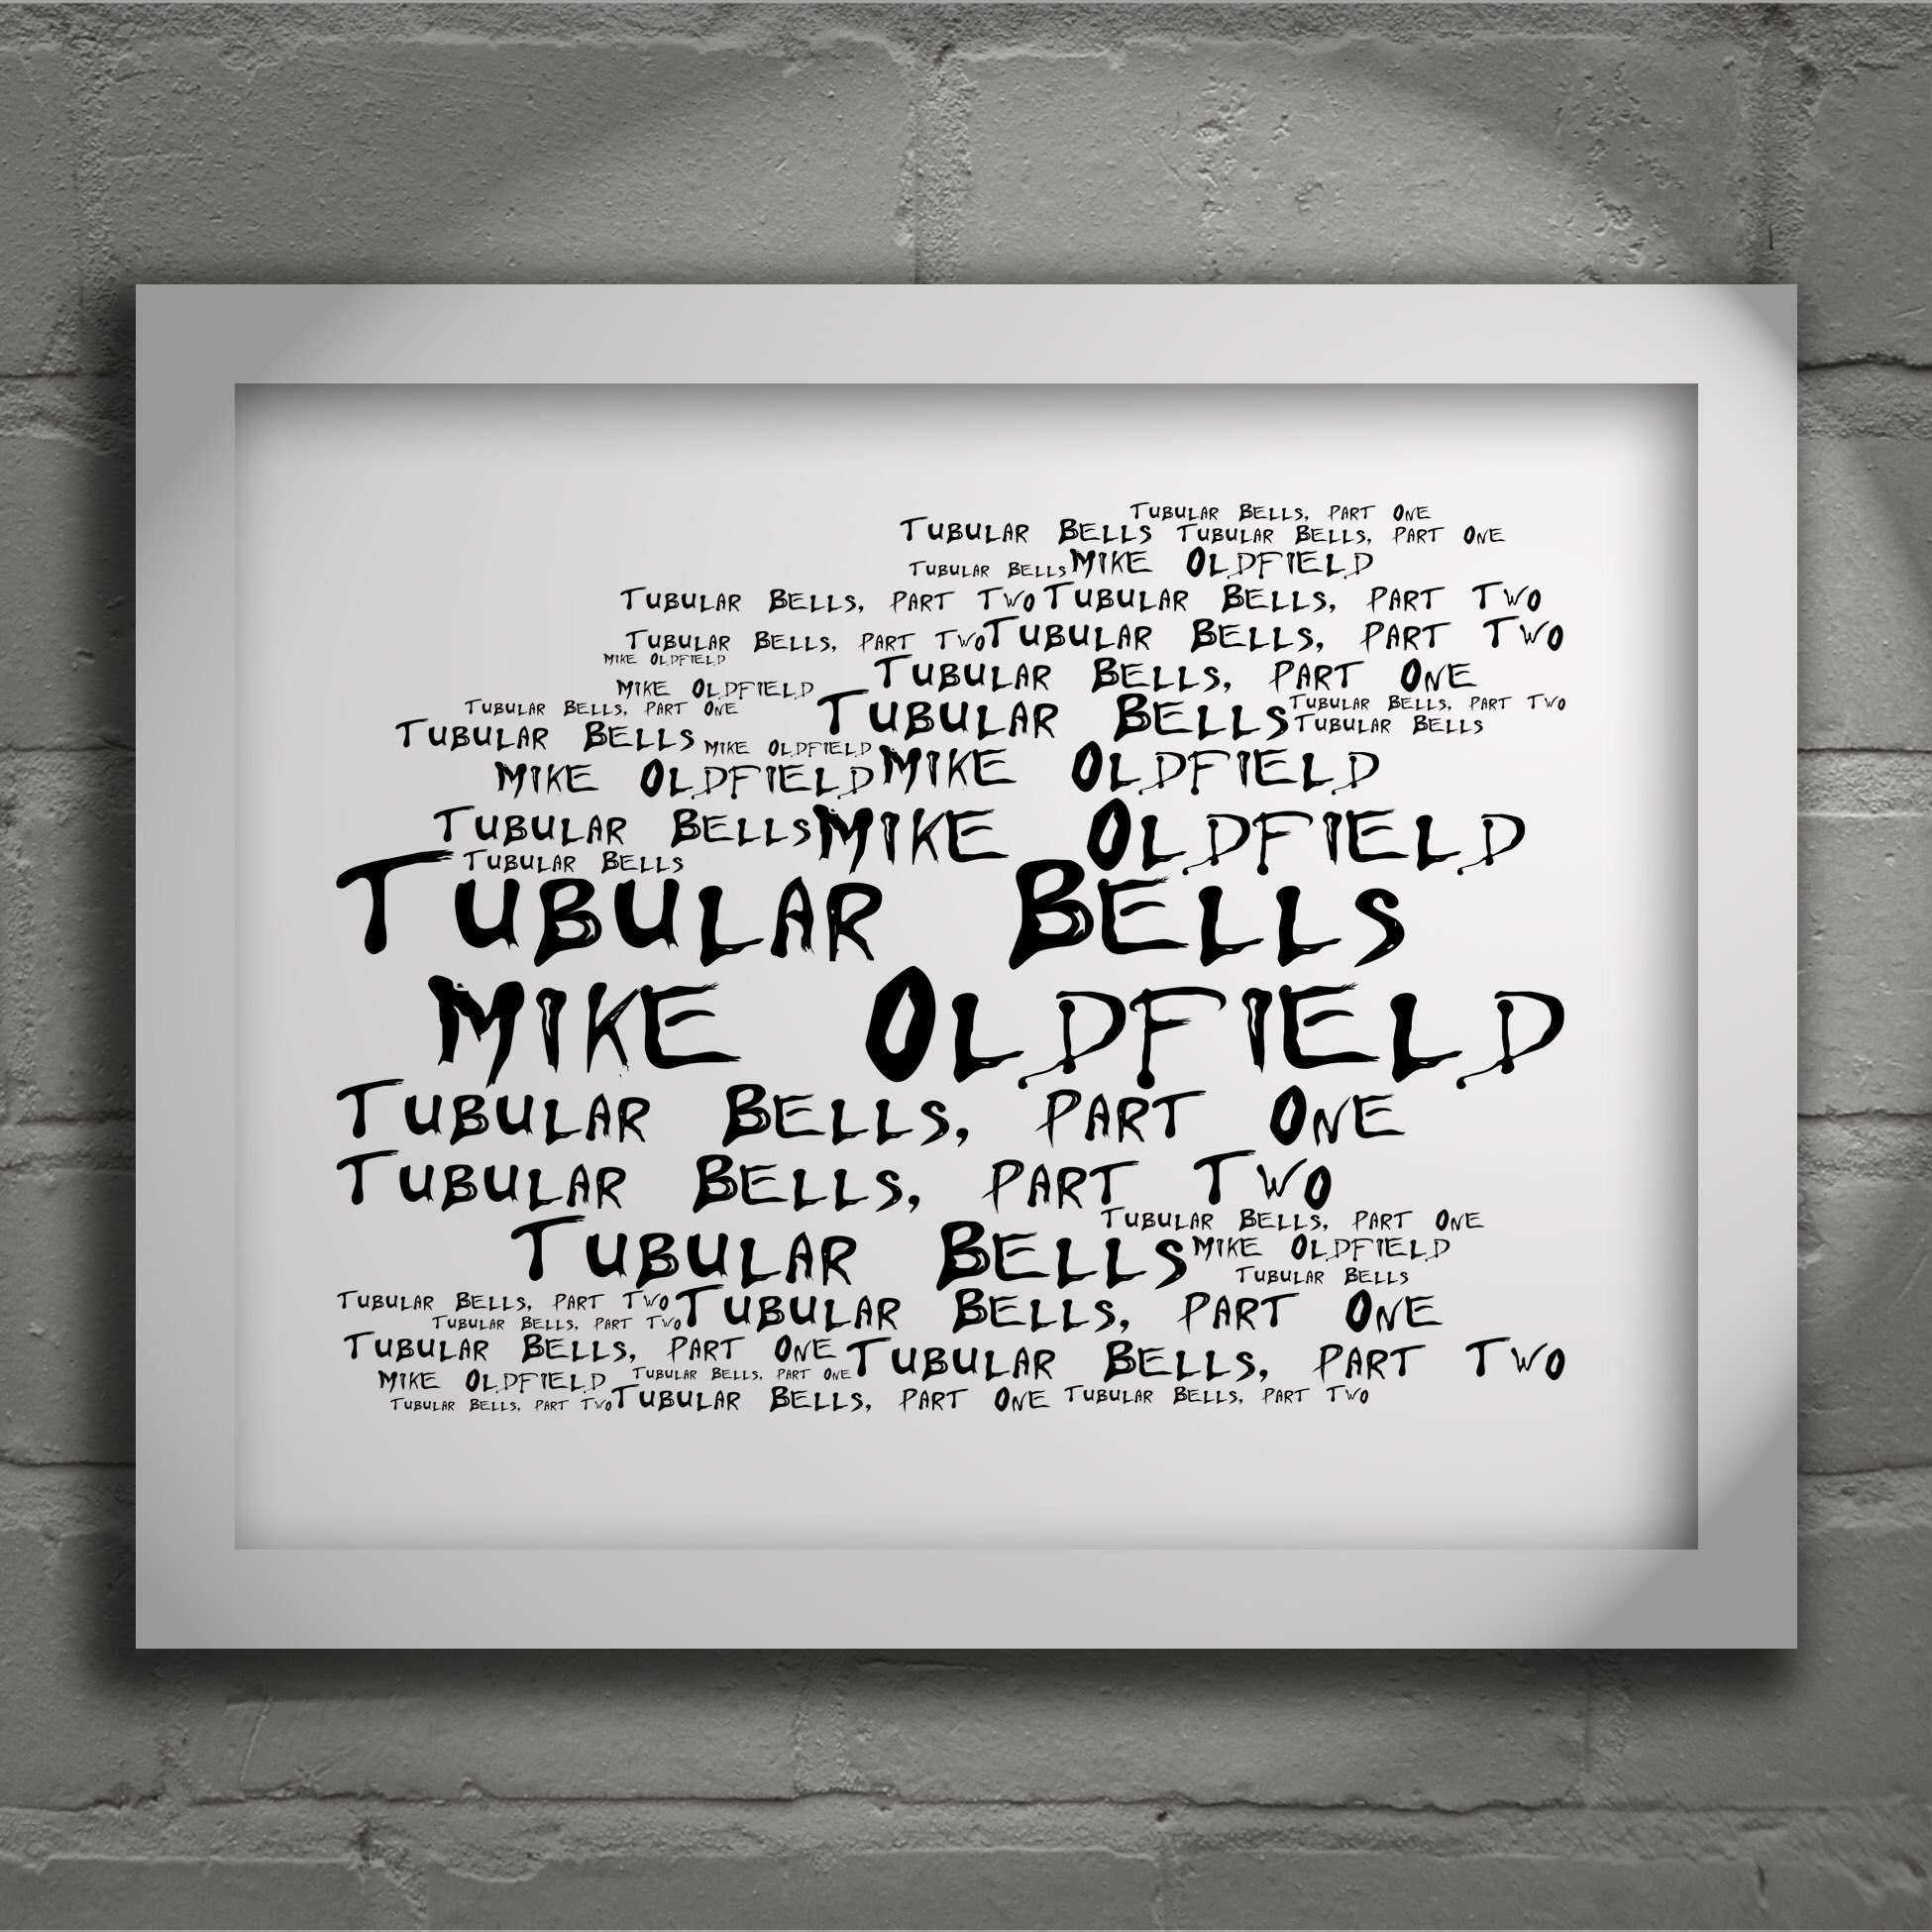 Tubular Bells, part One
Tubular Bells Tubular Bells, part One
Tubular Bells Mike Oldfield
Tubular Bells, part Two Tubular Bells, part Two
Tubular Bells, part Two Tubular Bells, part Two
Mike Oldfield
Mike Oldfield Tubular Bells, part One
Tubular Bells, part One Tubular Bells Tubular Bells, part Two
Tubular Bells Mike Oldfield Tubular Bells
Mike Oldfield Mike Oldfield
Tubular Bells Mike Oldfield
Tubular Bells
Tubular Bells
Mike Oldfield
Tubular Bells, part One
Tubular Bells, part Two
Tubular Bells, part One
Tubular Bells Mike Oldfield
Tubular Bells
Tubular Bells, part Two Tubular Bells, part One
Tubular Bells, part Two
Tubular Bells, part One Tubular Bells, part Two
Mike Oldfield Tubular Bells, part One
Tubular Bells, part Two Tubular Bells, part One Tubular Bells, part Two